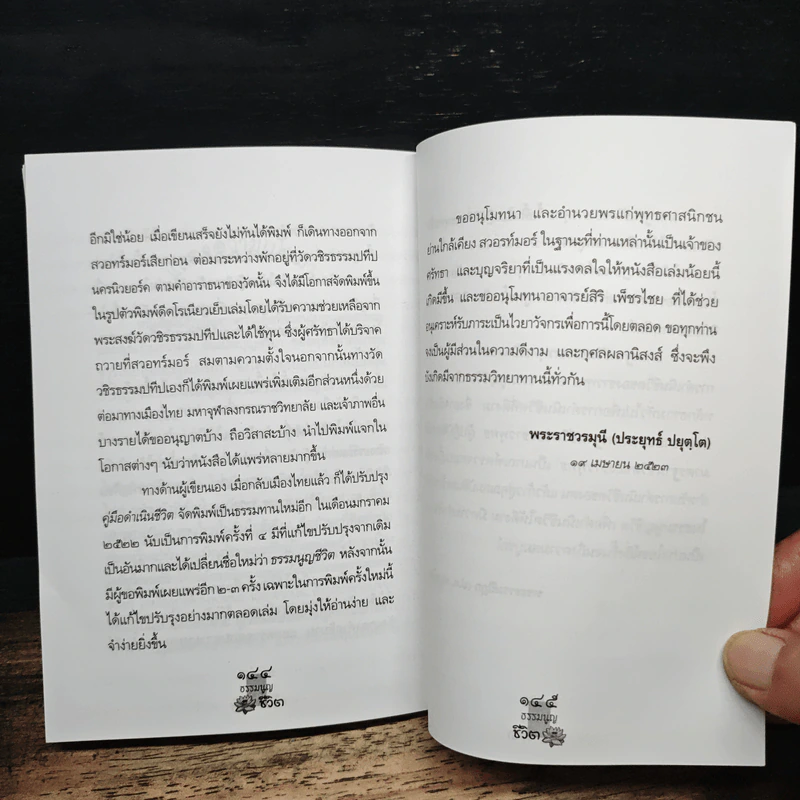 อีกมิใช่น้อย เมื่อเขียนเสร็จยังไม่ทันได้พิมพ์ ก็เดินทางออกจาก
สวอทร์มอร์เสียก่อน ต่อมาระหว่างพักอยู่ที่วัดวชิรธรรมปทีป
นครนิวยอร์ค ตามคำอาราธนาของวัดนั้น จึงได้มีโอกาสจัดพิมพ์ขึ้น
ในรูปตัวพิมพ์ดีดโรเนียวเย็บเล่มโดยได้รับความช่วยเหลือจาก
พระสงฆ์วัดวชิรธรรมปทีปและได้ใช้ทุน ซึ่งผู้ศรัทธาได้บริจาค
ถวายที่สวอทร์มอร์ สมตามความตั้งใจนอกจากนั้นทางวัด
วชิรธรรมปทีปเองก็ได้พิมพ์เผยแพร่เพิ่มเติมอีกส่วนหนึ่งด้วย
ต่อมาทางเมืองไทย มหาจุฬาลงกรณราชวิทยาลัย และเจ้าภาพอื่น
บางรายได้ขออนุญาตบ้าง ถือวิสาสะบ้าง นำไปพิมพ์แจกใน
โอกาสต่างๆ นับว่าหนังสือได้แพร่หลายมากขึ้น
ทางด้านผู้เขียนเอง เมื่อกลับเมืองไทยแล้ว ก็ได้ปรับปรุง
คู่มือดำเนินชีวิต จัดพิมพ์เป็นธรรมทานใหม่อีก ในเดือนมกราคม
๒๕๒๒ นับเป็นการพิมพ์ครั้งที่ ๔ มีที่แก้ไขปรับปรุงจากเดิม
เป็นอันมากและได้เปลี่ยนชื่อใหม่ว่า ธรรมนูญชีวิต หลังจากนั้น
มีผู้ขอพิมพ์เผยแพร่อีก ๒-๓ ครั้ง เฉพาะในการพิมพ์ครั้งใหม่นี้
ได้แก้ไขปรับปรุงอย่างมากตลอดเล่ม โดยมุ่งให้อ่านง่าย และ
จำง่ายยิ่งขึ้น
๑๔๔
ธรรมนูญ
ชีวิต
ขออนุโมทนา และอำนวยพรแก่พุทธศาสนิกชน
ย่านใกล้เคียง สวอร์ทมอร์ ในฐานะที่ท่านเหล่านั้นเป็นเจ้าของ
ศรัทธา และบุญจริยาที่เป็นแรงดลใจให้หนังสือเล่มน้อยนี้
เกิดมีขึ้น และขออนุโมทนาอาจารย์สิริ เพ็ชรไชย ที่ได้ช่วย
อนุเคราะห์รับภาระเป็นไวยาวัจกรเพื่อการนี้โดยตลอด ขอทุกท่าน
จงเป็นผู้มีส่วนในความดีงาม และกุศลผลานิสงส์ ซึ่งจะพึง
บังเกิดมีจากธรรมวิทยาทานนี้ทั่วกัน
พระราชวรมุนี (ประยุทธ์ ปยุตฺโต)
๑๙ เมษายน ๒๕๒๓
๑๔๕
ธรรมนูญ
ชีวิต